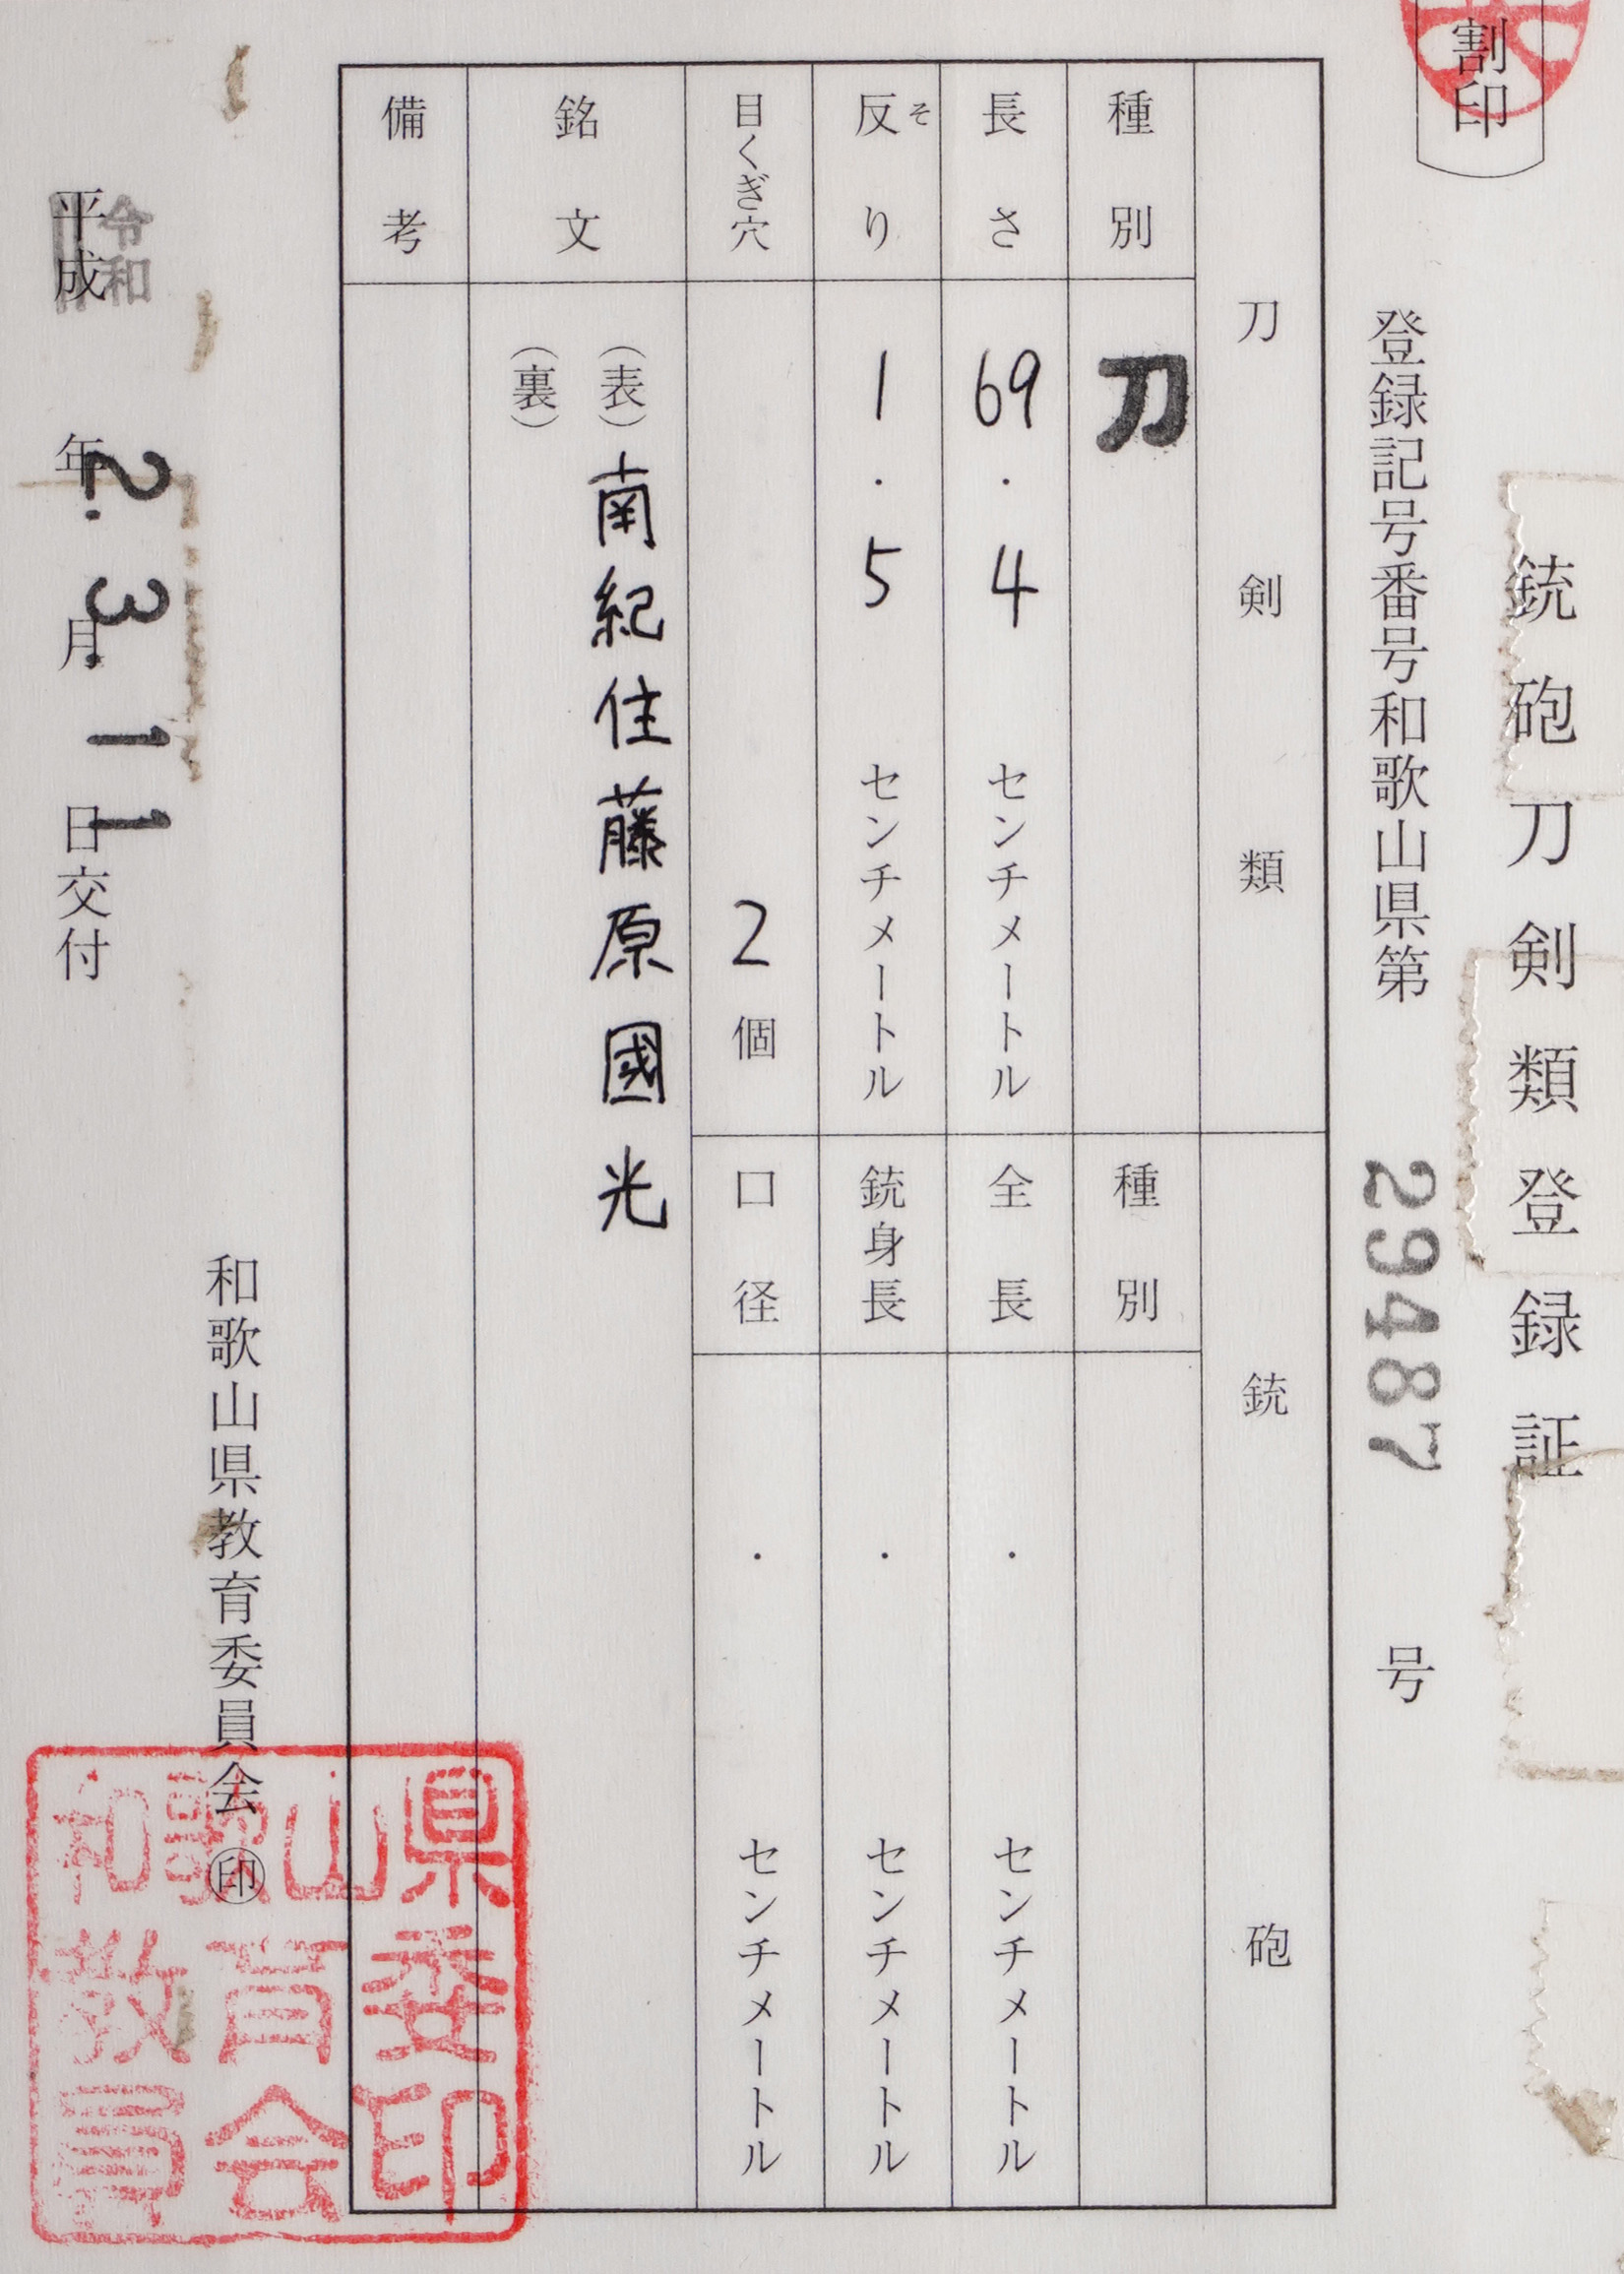 割印
銃砲刀剣類登録証
登録記号番号和歌山県第 29487 号
刀剣類
銃砲
種別 刀
種別
長さ 69.4 センチメートル
全長 . センチメートル
反り そ 1.5 センチメートル
銃身長 . センチメートル
目くぎ穴 2個
口径 . センチメートル
銘文
(表) 南紀住藤原國光
(裏)
備考
和歌山県教育委員会 ㊞
令和
平成 2年 3月 11日交付
和歌山県
教育委
員会印